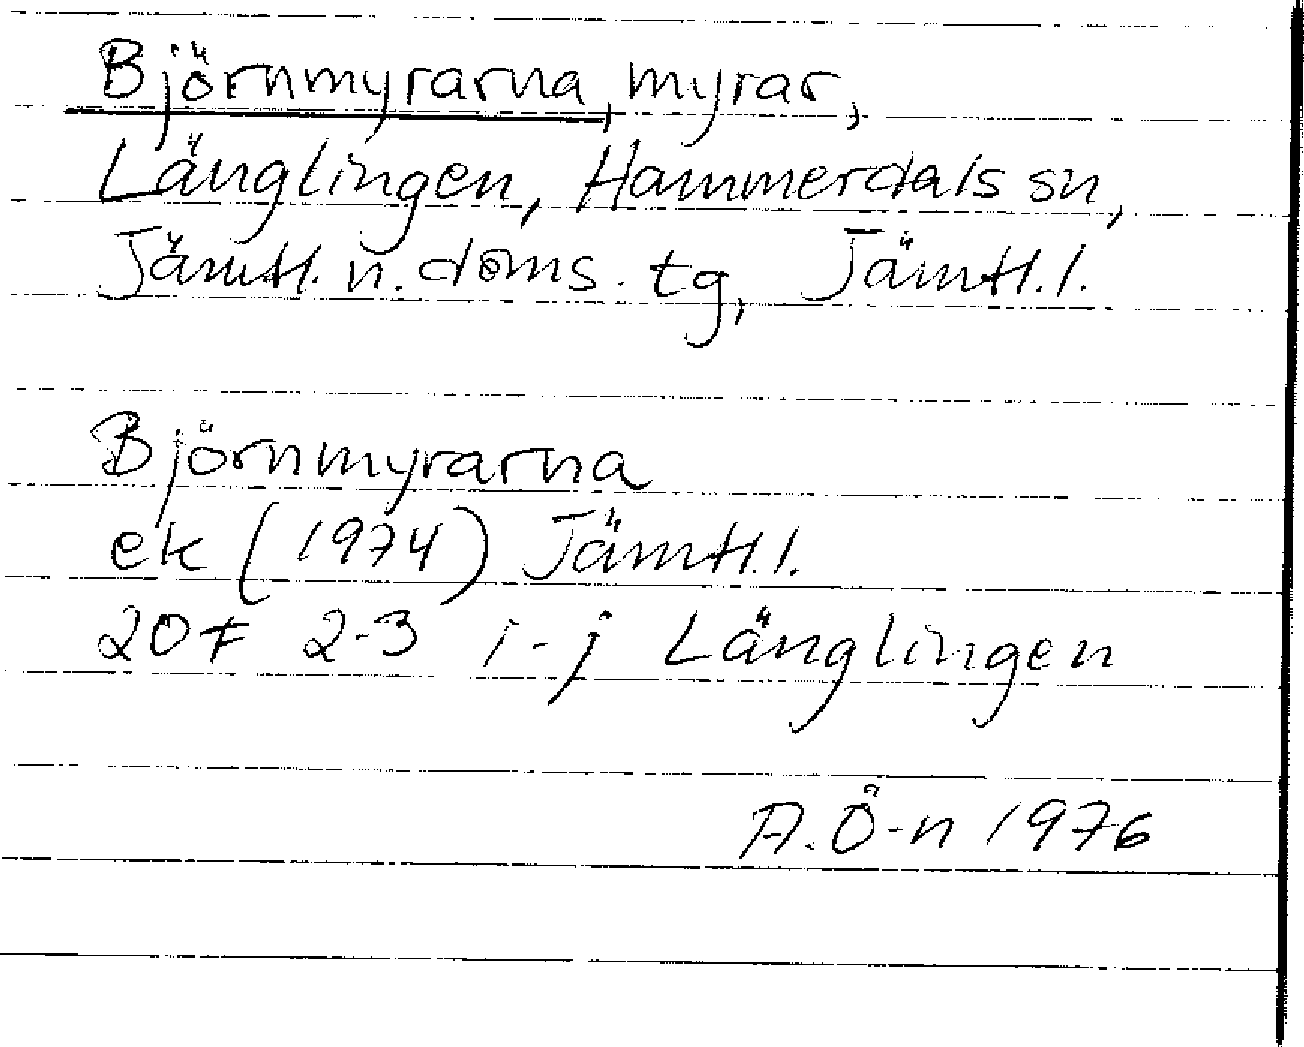 Björnmyrarna, myrar,
Länglingen, Hammerdals sn,
Jämtl. n. doms. tg, Jämtl. l.
Björnmyrarna
ek (1974) Jämtl. l.
20F 2-3 i-j Länglingen
A. Ö-n 1976